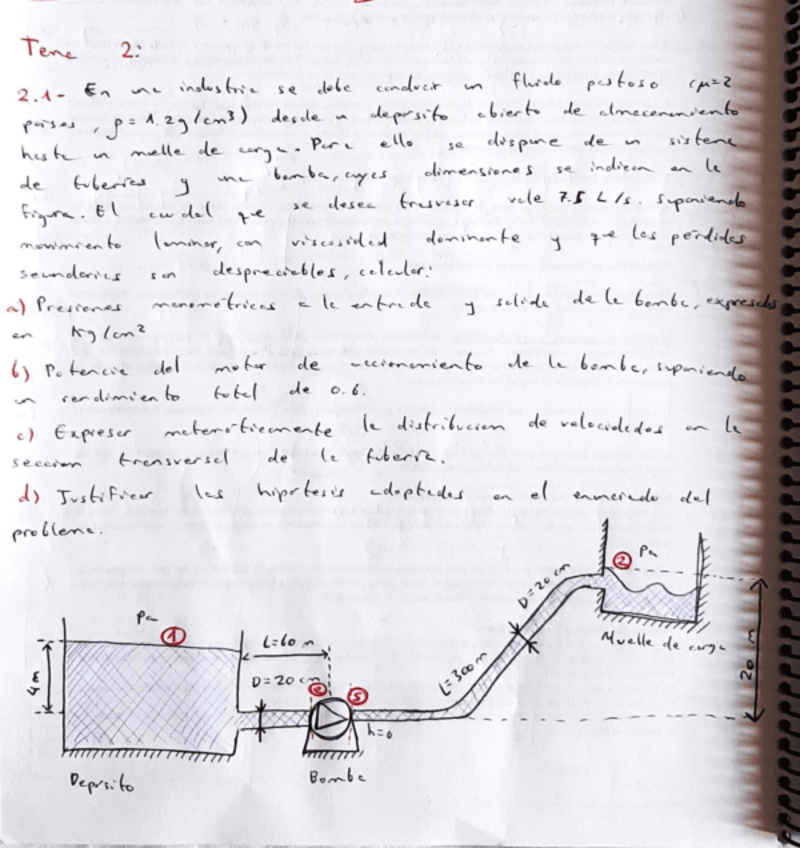 Tema 2:
2.1- En una industria se debe conducir un fluido pastoso (μ=2
poises, ρ=1.2g/cm³) desde un deposito abierto de almacenamiento
hasta un muelle de carga. Para ello se dispone de un sistema
de tuberias y una bomba, cuyas dimensiones se indican en la
figura. El caudal que se desea trasvasar vale 7.5 L/s. suponiendo
movimiento laminar, con viscosidad dominante y que las pérdidas
secundarias son despreciables, calcular:
a) Presiones manométricas a la entrada y salida de la bomba, expresadas
en Kg/cm²
b) Potencia del motor de accionamiento de la bomba, suponiendo
un rendimiento total de 0.6.
c) Expresar matemáticamente la distribucion de velocidades en la
seccion transversal de la tuberia.
d) Justificar las hipótesis adoptadas en el enunciado del
problema.
Pa
①
4m
L=60 m
D=20 cm
Ⓔ
Ⓢ
h=0
L=300m
D=20 cm
② Pa
Muelle de carga
20 m
Depósito
Bomba